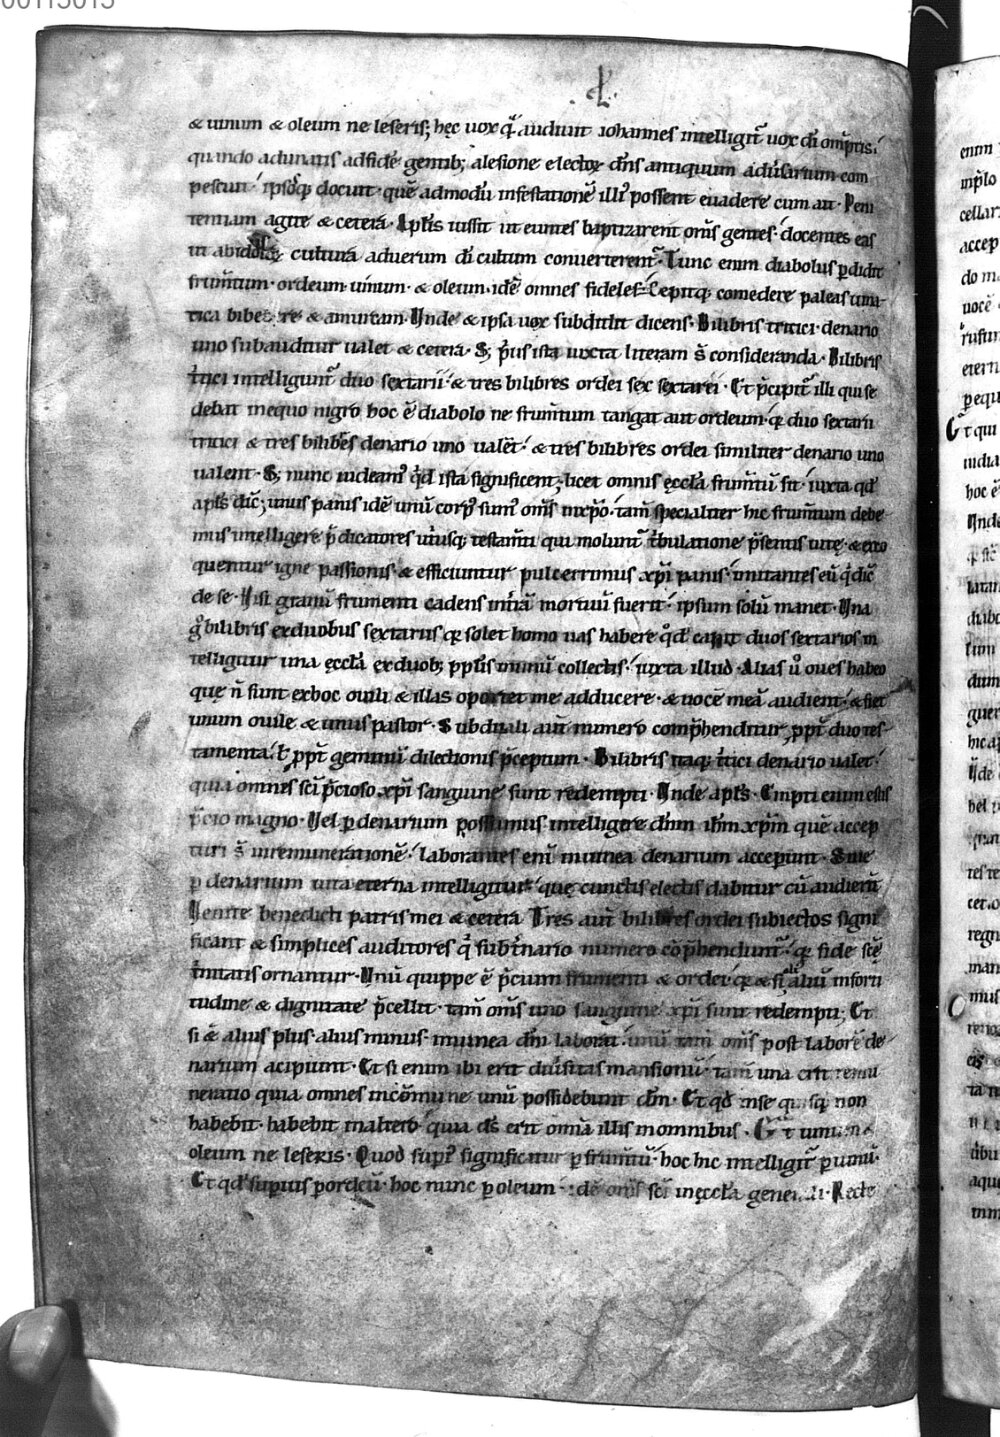 & uinum & oleum ne leseris; hęc uox q̄ audiuit iohannes intelligit᷑ uox dī om̄ptis.
quando adunatis adfidē gentib; alesione electoꝝ dn̄s antiquum adūsarium com
pescuit ipsosq; docuit quē admodū infestationē illi᷒ possent euadere cum ait. Peni
tentiam agite & cetera. Aplīs iussit ut euntes baptizarent om̄s gentes. docentes eas
ut abidolaꝝ cultura aduerum dī cultum conuerterent᷑. Tunc enim diabolus ꝑdidit
frum̄tum. ordeum. uinum. & oleum. idē omnes fideles. Cepitq; comedere paleas uina
tica bibere & amurcam. Vnde & ipsa uox subdidit dicens. Bilibris tritici denario
uno subauditur ualet & cetera. S; p̄us ista iuxta literam s̄ consideranda. Bilibris
t̄tici intelligunt᷑ duo sextarii. & tres bilibres ordei sex sextarei. Et p̄cipit᷑ illi qui se
debat inequo nigro hoc ē diabolo ne frum̄tum tangat aut ordeum. q̄ duo sextarii
tritici & tres bilibres denario uno ualet. & tres bilibres ordei similiter denario uno
ualent. S; nunc uideam᷒ qd̄ ista significent; licet omnis ęccl̄a frum̄tū sit. iuxta qd̄
apl̄s dic̄; unus panis idē unū corp᷒ sum᷒ om̄s inxp̄o. tam̄ specialiter hic frum̄tum debe
mus intelligere p̄dicatores ut̄iusq; testam̄ti qui molunt᷑ t̄bulatione p̄sentis uitę. & exco
quentur igne passionis & efficiuntur pulcerrimus xp̄i panis. imitantes eū q̄ dic̄
de se. Nisi granū frumenti cadens int̄rā mortuū fuerit. ipsum solū manet. Vna
g̊ bilibris exduobus sextariis q̄ solet homo uas habere qd̄ capit duos sextarios in
telligitur una ęccl̄a exduob; pplīs inunū collectis. iuxta illud. Alias ů oues habeo
quę n̄ sunt exhoc ouili & illas oportet me adducere. & uocē meā audient. & fiet
unum ouile & unus pastor. Subduali aut̄ numero comp̄henditur, ppt̄ duo tes
tamenta. ł ppt̄ geminū dilectionis p̄ceptum. Bilibris itaq; t̄tici denario ualet.
quia omnes sc̄i p̄cioso xp̄i sanguine sunt redempti. Vnde apl̄s. Empti enim estis
p̄cio magno. Vel ꝑ denarium possumus intelligere dn̄m ih̄m xp̄m quē accep
turi s̄ inremunerationē. laborantes enī inuinea denarium acceperunt. Siue
ꝑ denarium uita eterna intelligitur. quę cunctis electis dabitur cū audierīt
Venite benedicti patris mei & cetera Tres aut̄ bilibres ordei subiectos signi
ficant & simplices auditores q̄ subt̄nario numero cōp̄hendunt᷑. q̄ fide sc̄ē
t̄nitatis ornantur. Vnū quippe ē p̄cium frumenti & ordei. q̄ & si aliū inforti
tudine & dignitate p̄cellit. tam̄ om̄s uno sanguine xp̄i sunt redempti; Et
si & alius plus. alius minus. inuinea dn̄i laborat. unū tam̄ om̄s post laborē de
narium acipiunt. Et si enim ibi erit diūsitas mansionū. tam̄ una erit remu
neratio quia omnes incōmune unū possidebunt dn̄m. Et qd̄ inse quisq; non
habebit. habebit inaltero. quia ds̄ erit omīa illis inomnibus. Et uinum &
oleum ne leseris. Quod sup᷒ significatur ꝑ frum̄tū. hoc hic intelligit᷑ ꝑ uinū.
Et qd̄ superius ꝑ ordeū. hoc nunc ꝑ oleum. idē om̄s sc̄i inęccl̄a